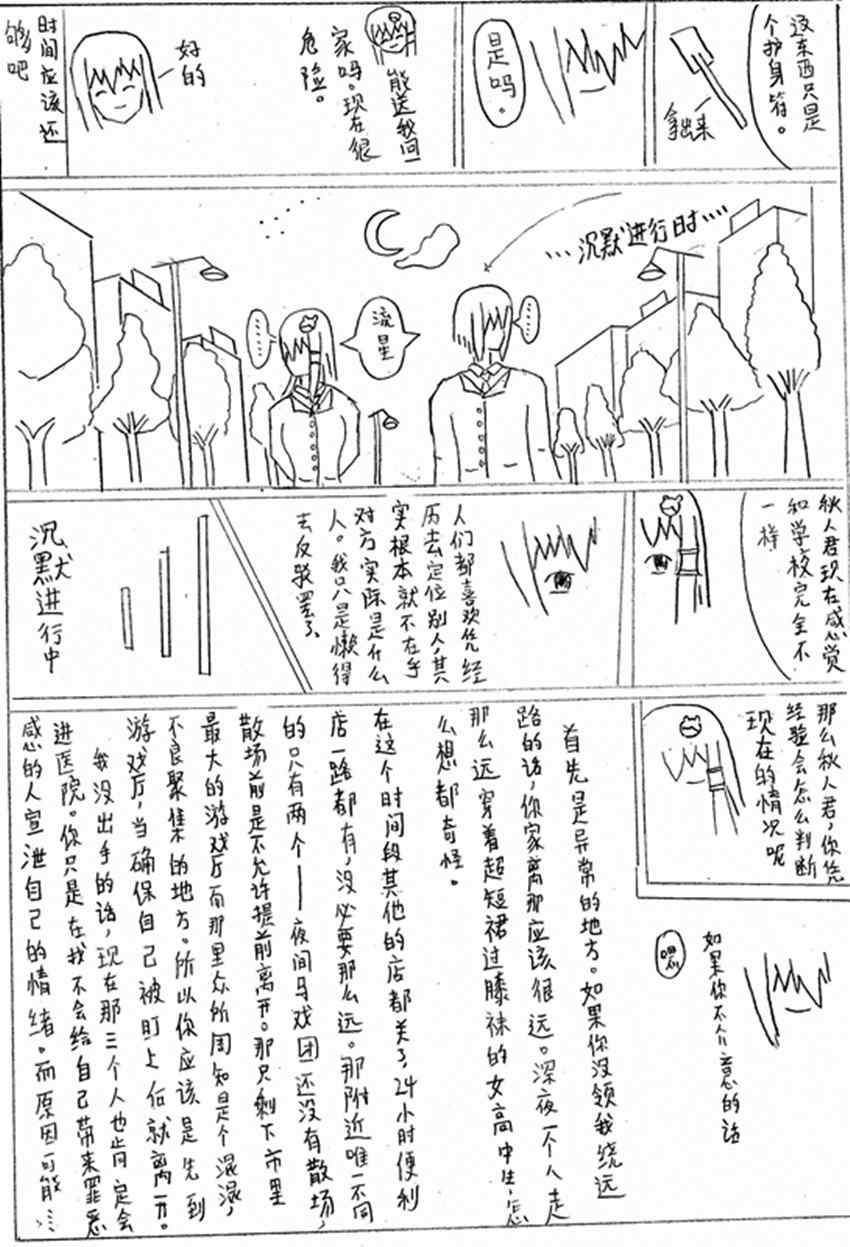 这东西只是
个护身符。
拿出来
是吗。
能送我回
家吗。现在很
危险。
好的
时间应该还
够吧
···沉默进行时····
流星
秋人君现在感觉
和学校完全不
一样
人们都喜欢凭经
历去定位别人，其
实根本就不在乎
对方实际是什么
人。我只是懒得
去反驳罢了、
沉默进行中
那么秋人君，你凭
经验会怎么判断
现在的情况呢
如果你不介意的话
首先是异常的地方。如果你没领我绕远
路的话，你家离那应该很远。深夜一个人走
那么远穿着超短裙过膝袜的女高中生，怎
么想都奇怪。
在这个时间段其他的店都关了，24小时便利
店一路都有，没必要那么远。那附近唯一不同
的只有两个——夜间马戏团还没有散场，
散场前是不允许提前离开。那只剩下市里
最大的游戏厅而那里众所周知是个混混，
不良聚集的地方。所以你应该是先到
游戏厅，当确保自己被盯上后就离开。
我没出手的话，现在那三个人也肯定会
进医院。你只是在找不会给自己带来罪恶
感的人宣泄自己的情绪。而原因可能……